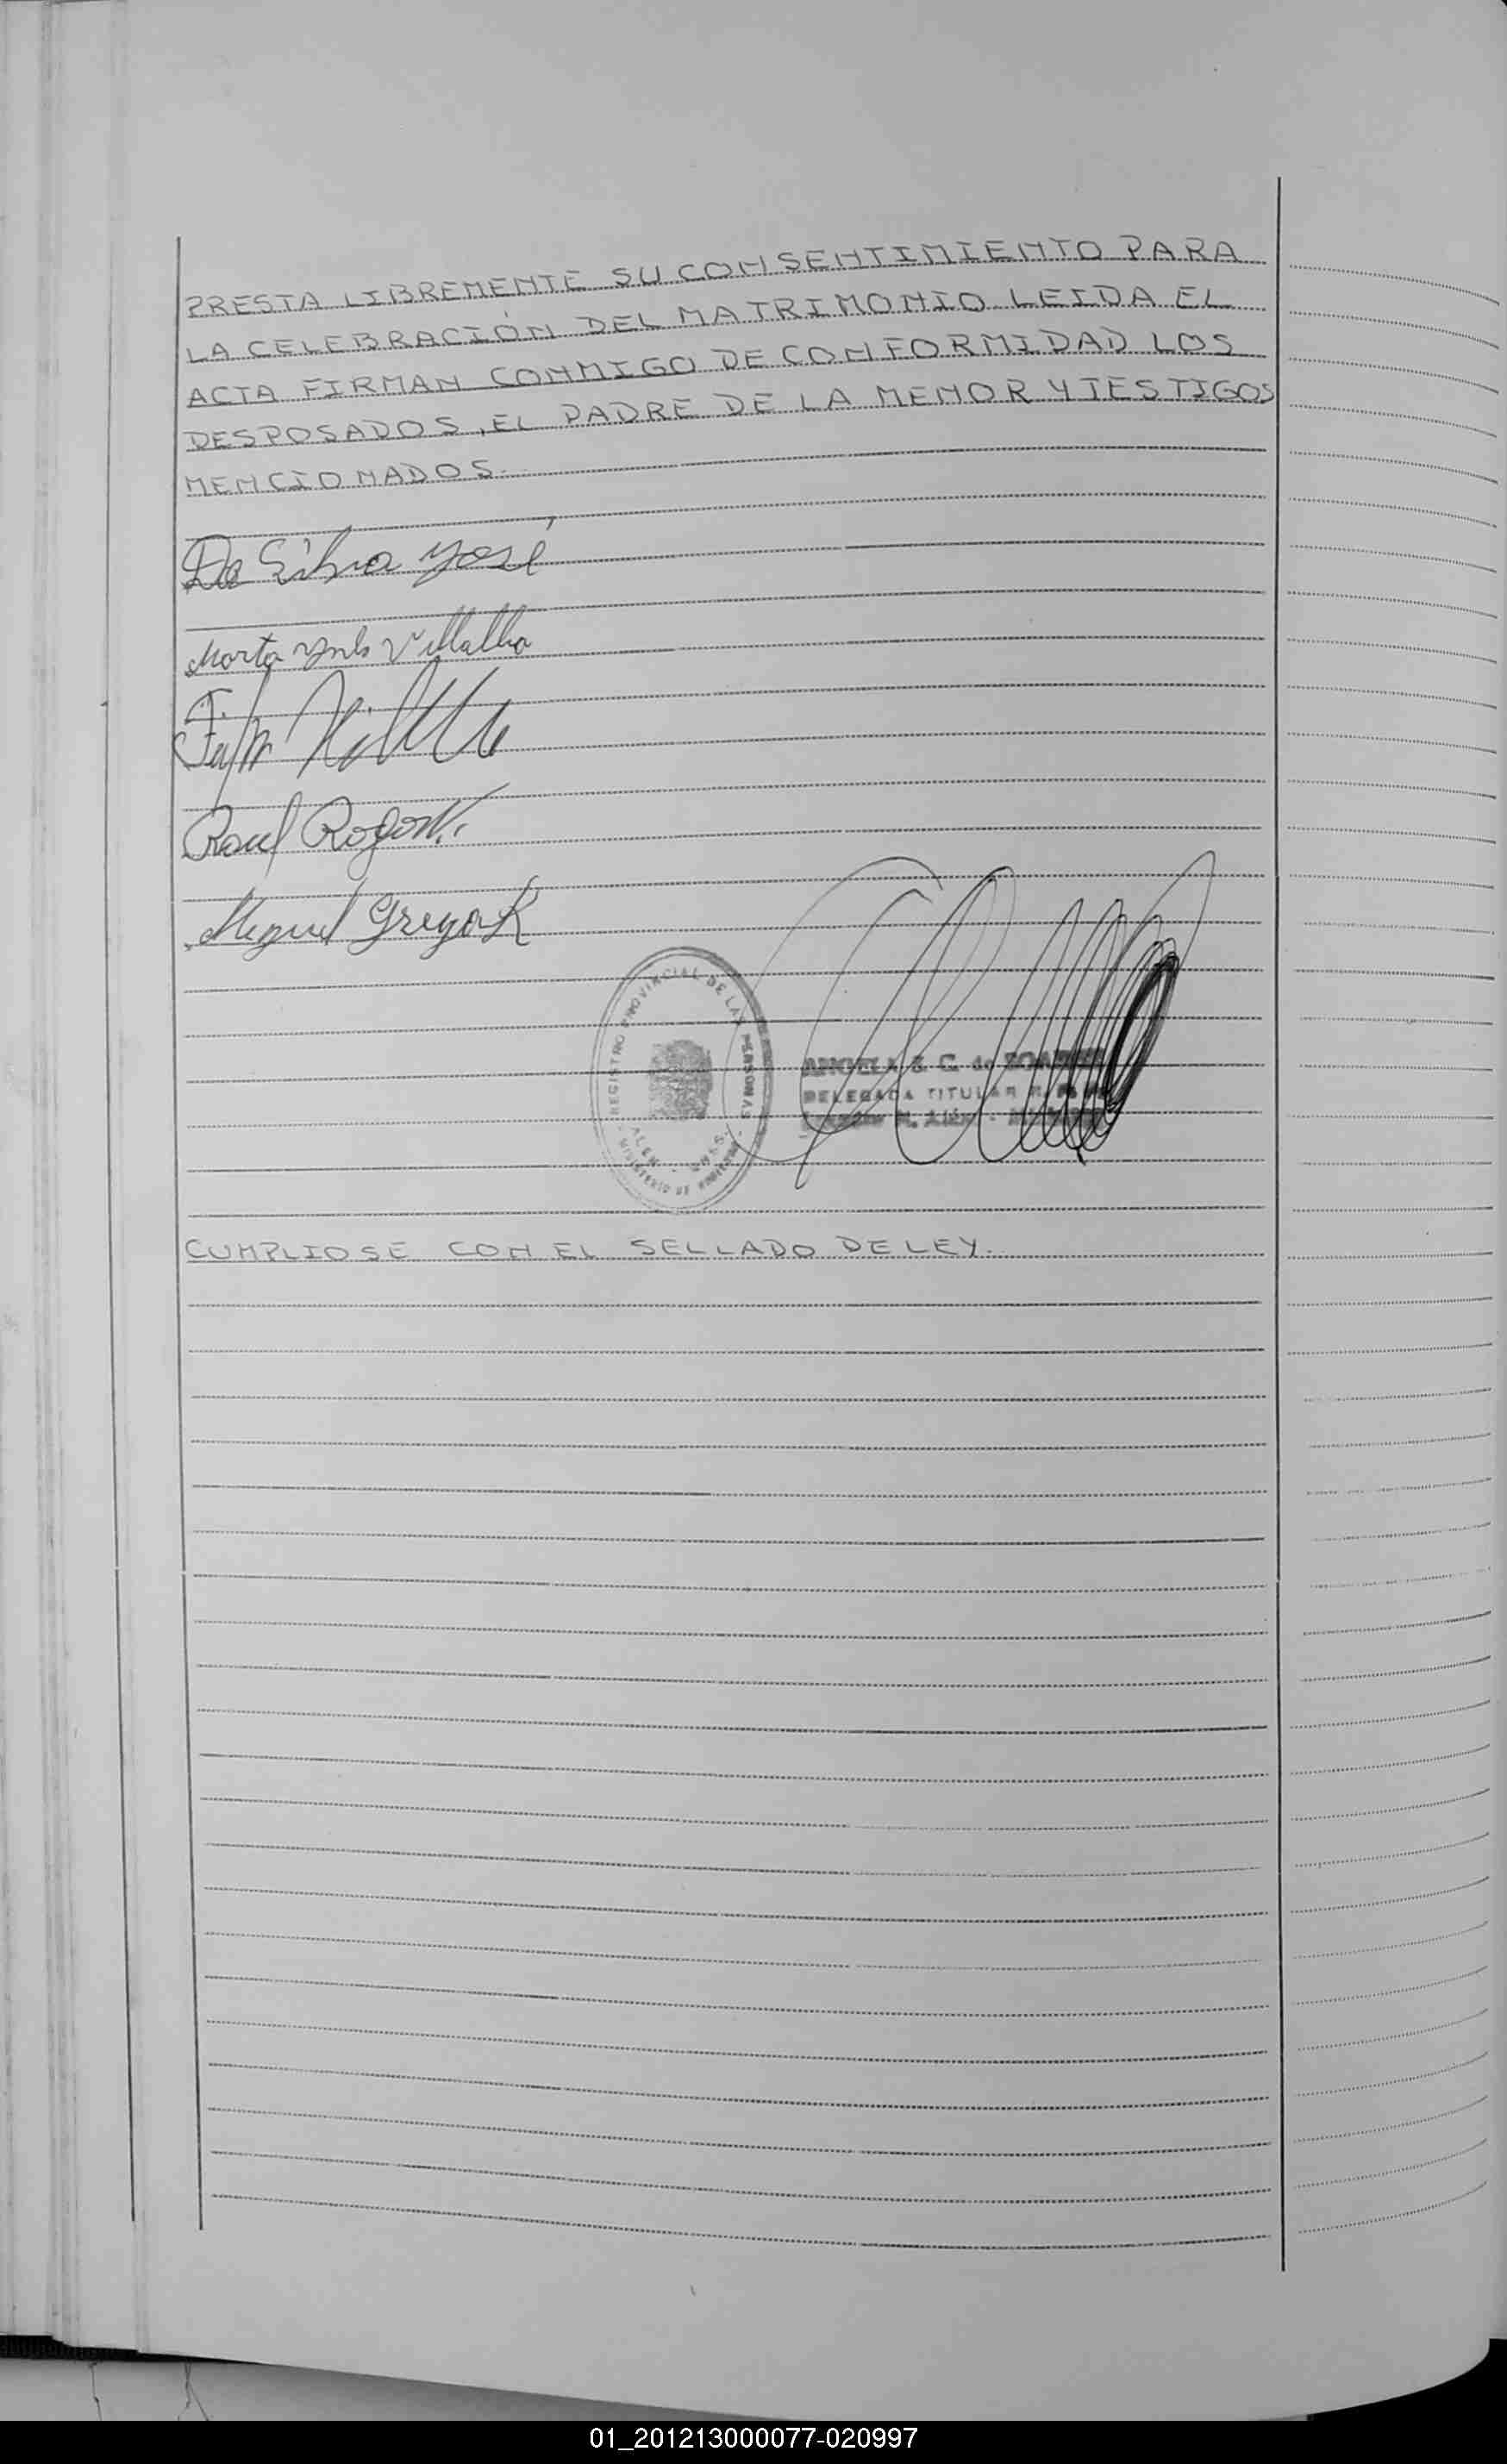 PRESTA LIBREMENTE SU CONSENTIMIENTO PARA
LA CELEBRACIÓN DEL MATRIMONIO LEIDA EL
ACTA FIRMAN CONMIGO DE CONFORMIDAD LOS
DESPOSADOS, EL PADRE DE LA MENOR Y TESTIGOS
MENCIONADOS.
Da Silva José
Marta Ynés Villalba
Raul
Miguel
REGISTRO PROVINCIAL DE LAS PERSONAS
ALEM
MINISTERIO DE
ANGELA de
DELEGADA TITULAR
N. Alem
CUMPLIOSE CON EL SELLADO DE LEY.
01_201213000077-020997